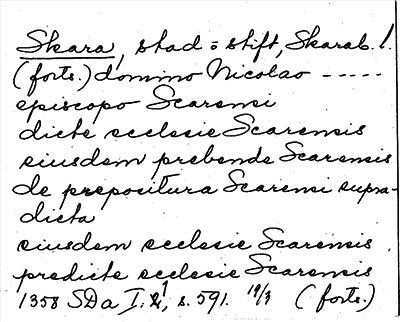 Skara, stad o stift, Skarab. l.
(forts.) domino Nicolao -----
episcopo Scarensi
dicte ecclesie Scarensis
eiusdem prebende Scarensis
de prepositura Scarensi supra-
dicta
eiusdem ecclesie Scarensis
predicte ecclesie Scarensis
1358 SDa I: s. 591. 19/3 (forts.)